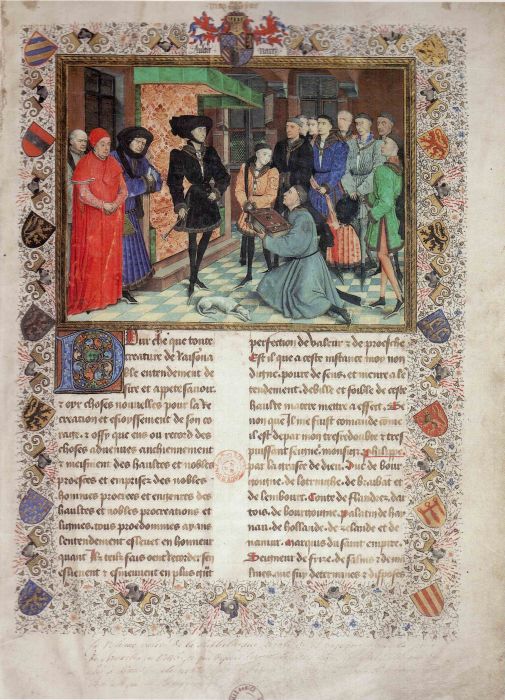 Aultre Narey
Pour che que toute
creature de raisona
ble entendement de
sire et appete savoir
& oyr choses nouvelles pour la re
creation et esioissement de son co
rage. & ossy que ens ou record des
choses advenues anchiennement
meismement des haultes et nobles
proesses et emprises des nobles
hommes procreez et engenrez des
haultes et nobles procreations et
lignies, tous preudommes ayans
lentendement eslevet en honneur
quant ilz telz fais oent recorder sen
eslievent & esmeuvent en plus grāt
perfection de valeur & de proesche
Est il que a ceste instance moy non
digne. poure de sens. et menre a len
tendement. debille et foible de ceste
haulte matere mettre a effect. Se
non que il me fuist comande come
il est de par mon tresredoubte & tres
puissant seigne. monsigr Phelippe
par la grasce de dieu. Duc de bour
goingne. de lotrijghe. de brabāt
de lembourc. Conte de flandrez. dar
tois. de bourgoingne. palatin de hay
nau. de hollande. de zelande et de
namur. marquis du saint empire.
Seigneur de frize. de salins & de ma
lines. me suy determines & disposes